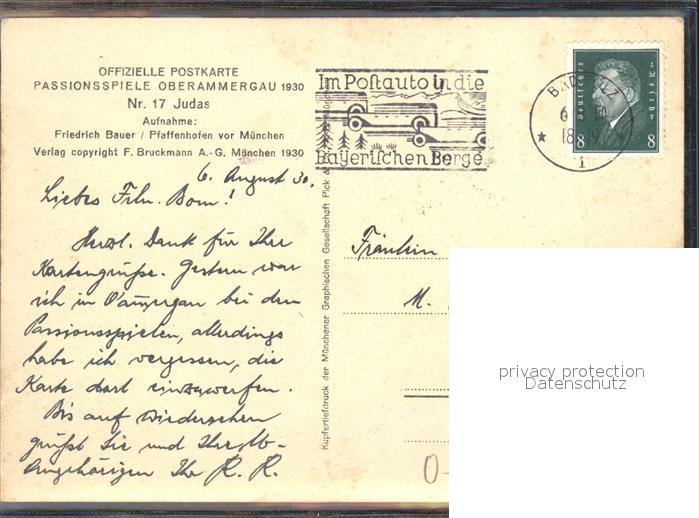 OFFIZIELLE POSTKARTE
PASSIONSSPIELE OBERAMMERGAU 1930
Nr. 17 Judas
Aufnahme:
Friedrich Bauer / Pfaffenhofen vor München
Verlag copyright F. Bruckmann A.-G. München 1930
6. August 30.
Liebes Frln. Bom!
Herzl. Dank für Ihre
Kartengrüße. Gestern war
ich in O'ammergau bei den
Passionsspielen, allerdings
habe ich vergessen, die
Karte dort einzuwerfen.
Bis auf Wiedersehen
grüßt Sie und Ihre lb.
Angehörigen Ihr R. R.
Kupfertiefdruck der Münchener Graphischen Gesellschaft Pick &
Im Postauto in die
Bayerischen Berge
BAD
18
1
Deutsches Reich
8 8
Fräulein
M.
privacy protection
Datenschutz